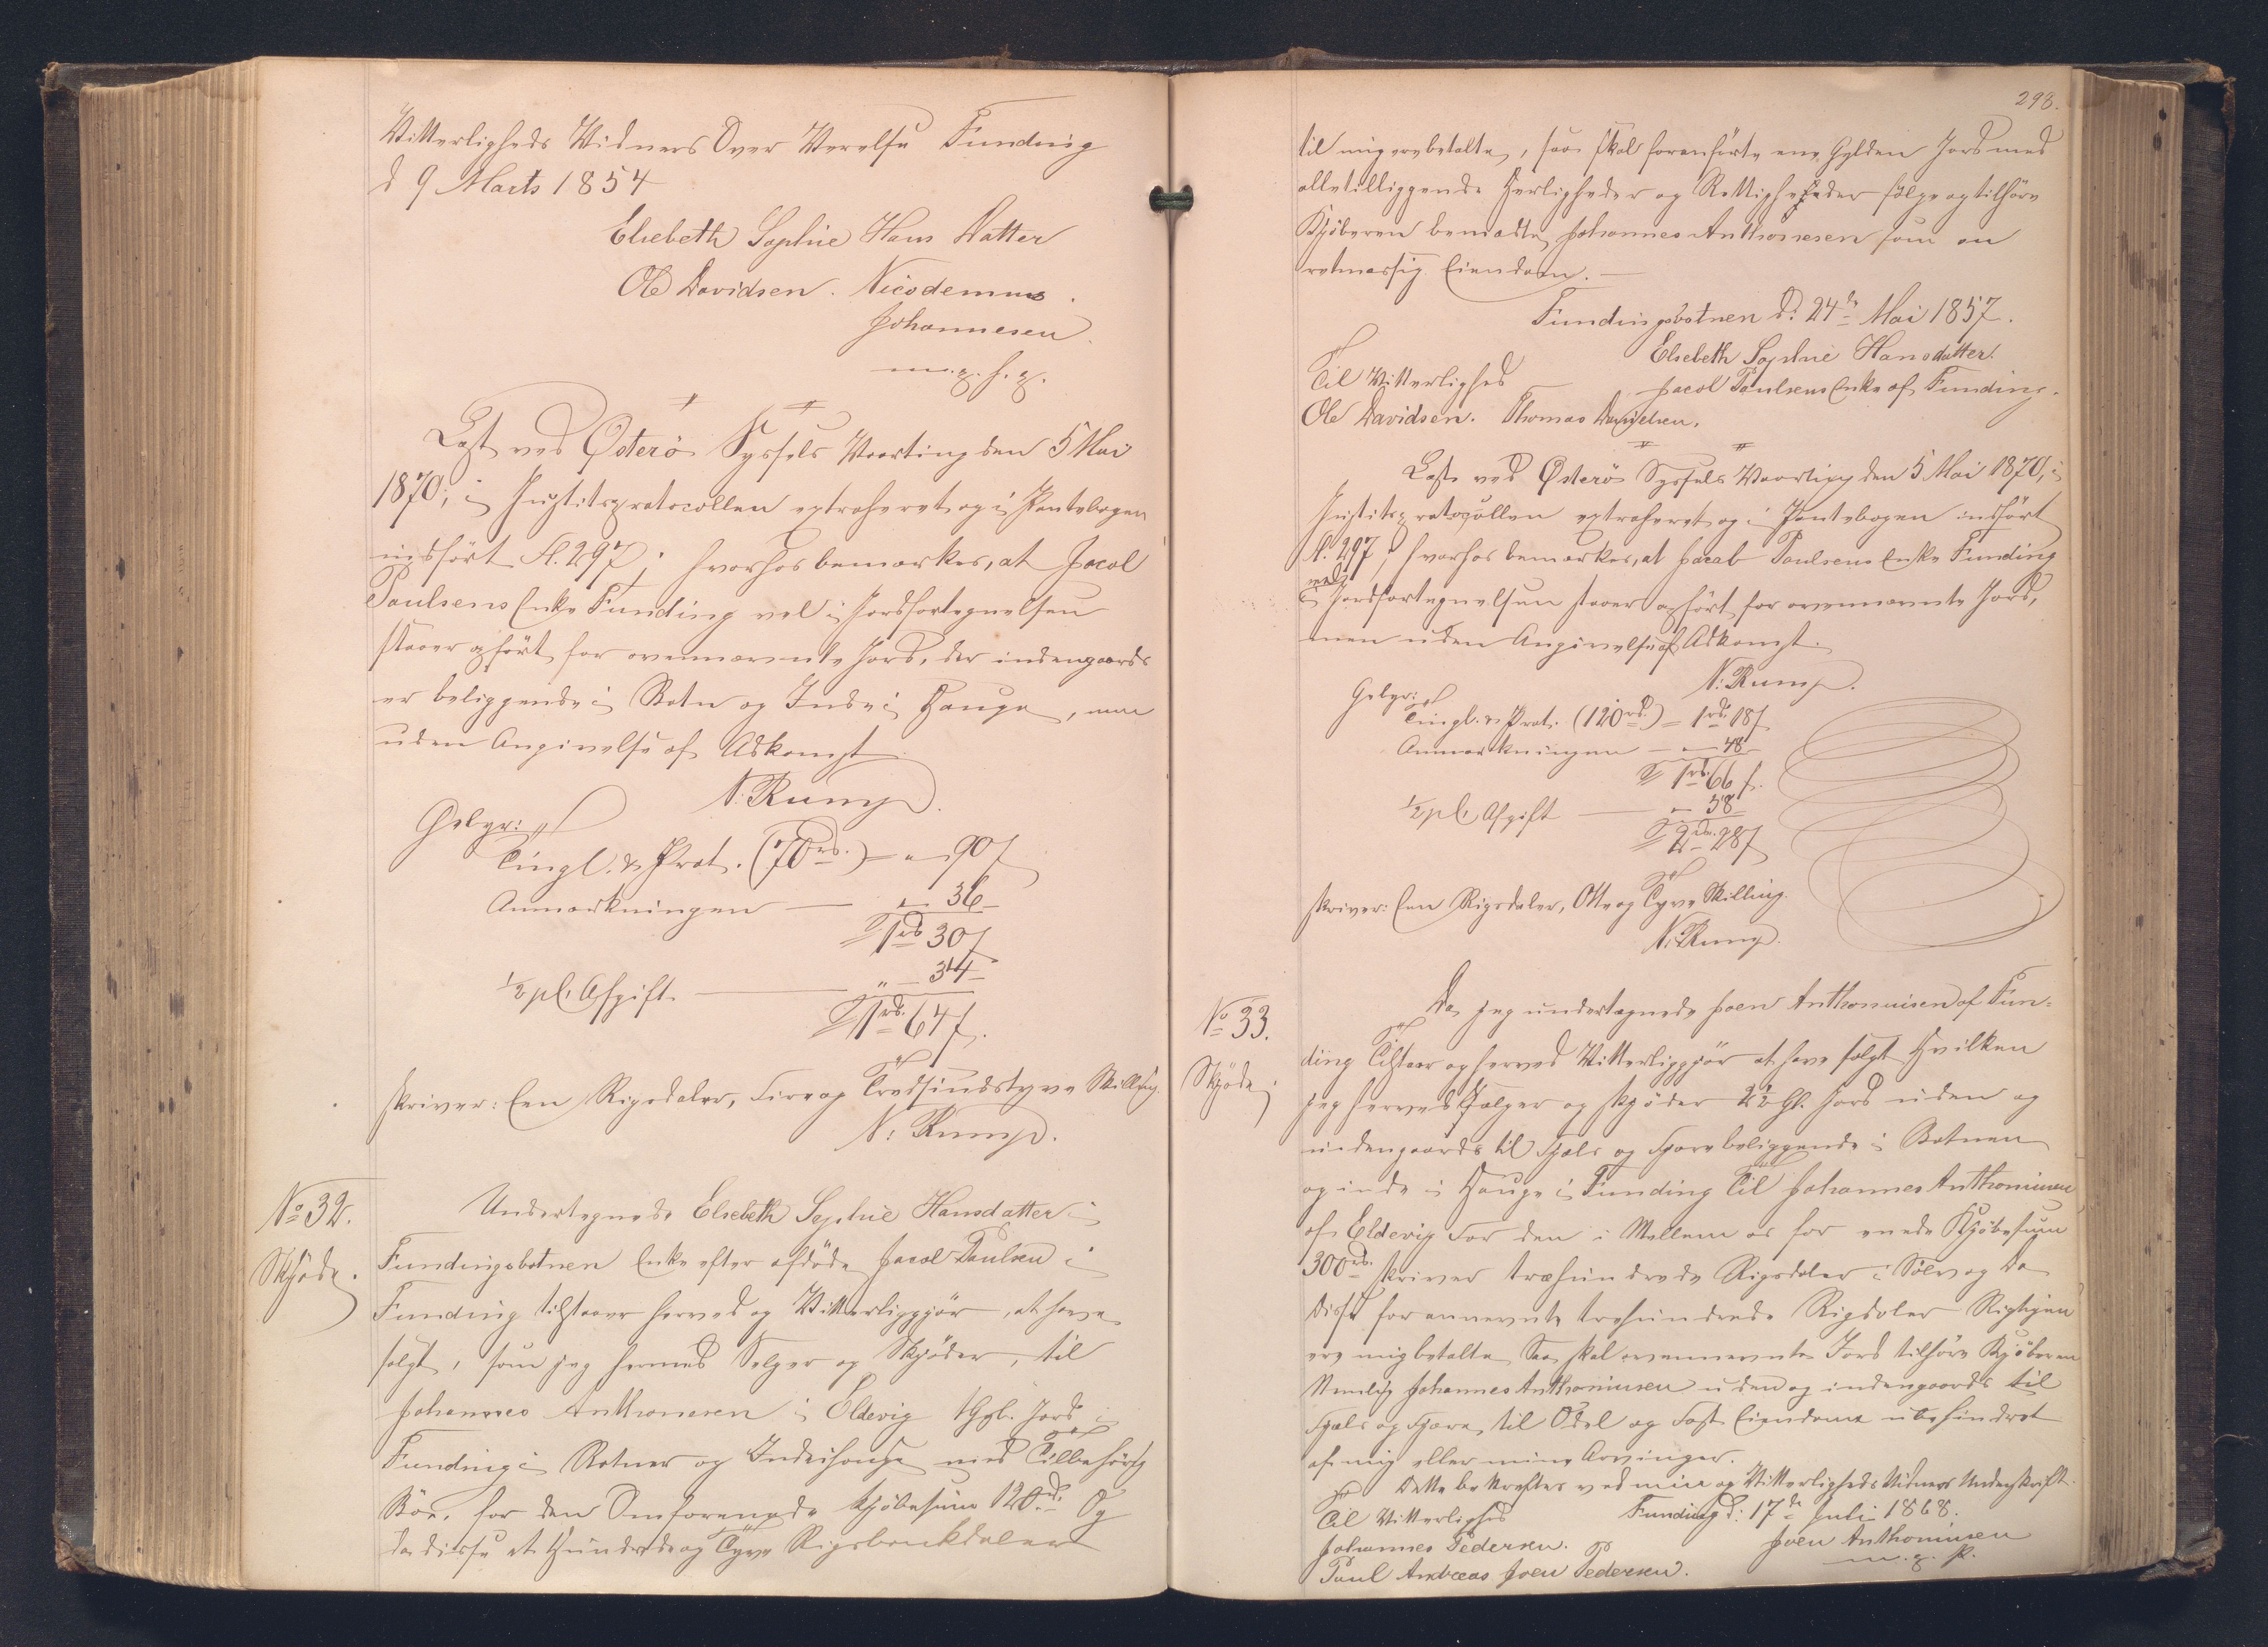 Vitterligheds Vidners Over Verelse Funding
d 9 Marts 1854
Elsebeth Sophie Hans Datter
Ole Davidsen. Nicodemus
Johannesen
m. p. f. p.
Læst ved Østerø Syssels Vaarting den 5 Mai
1870, i Justitsprotocollen extraheret og i Pantebogen
indført fl. 297; hvorhos bemærkes, at Jacob
Poulsens Enke Funding vel i Jordfortegnelsen
staaer opført for ovennævnte Jord, der indengaards
er beliggende i Botn og Inde i Hauge, men
uden Angivelse af Adkomst
N. Rump.
Gebyr:
Tingl. & Prot. (70 rd.) = " — 90 f
Anmærkningen — " — 36 —
1 rd 30 f
1/2 pCt Afgift — " — 34 —
1 rd. 64 f.
skriver: Een Rigsdaler, Fireog Tredsindstyve Skilling
N. Rump.
No 32.
Skjøde.
Undertegnede Elsebeth Sophie Hansdatter i
Fundingsbotnen Enke efter afdøde Jacob Poulsen i
Funding tilstaaer herved og Vitterliggjør, at have
solgt, som jeg hermed Selger og Skjøder, til
Johannes Anthonesen i Eldevig 1 Gyl. Jord i
Funding i Botner og Inde i hauge med Tilbehørig
Bøe, for den Omforenede Kjøbesum 120 rd. Og
da disse et Hundrede og Tyve Rigsbankdaler
298.
til mig ere betalte, saa skal foranførte ene Gylden Jord med
alle tilliggende Herligheder og Rettigheheder følge og tilhøre
Kjøberen bemældte Johannes Anthonesen som en
retmæssig Eiendom. —
Fundingsbotnen d. 24de Mai 1857.
Elsebeth Sophie Hansdatter.
Til Vitterlighed Jacob Poulsens Enke af Funding.
Ole Davidsen. Thomas Danjelsen.
Læst ved Østerø Syssels Vaarting den 5 Mai 1870, i
Justitsprotocollen extraheret og i Pantebogen indført
fl. 297; hvorhos bemærkes, at Jacob Poulsens Enke Funding
vel
i Jordfortegnelsen staaer opført for ovennævnte Jord,
men uden Angivelse af Adkomst.
N. Rump.
Gebyr:
Tingl. & Prot. (120 rd.) = 1 rd. 18 f
Anmærkningen — " — 48 —
1 rd. 66 f.
1/2 pCt Afgift — " — 58
2 rd. 28 f
skriver: Een Rigsdaler, Otte og Tyve Skilling.
N. Rump.
No 33.
Skjøde.
Da jeg undertegnede Joen Anthoniusen af Fun-
ding Tilstaar og herved Vitterliggjør at have solgt Hvilken
jeg herved Sælger og skjøder 2 1/2 Gl. Jord uden og
indengaards til Fjæls og Fjære beliggende i Botnen
og inde i Hauge i Funding Til Johannes Anthoniusen
af Eldevig For den i Mellem os for enede Kjøbesum
300 rd. skriver trehundrede Rigsdaler i Sølv og Da
disse for annevnte trehundrede Rigdaler Rigtigen
ere mig betalte Saa skal ovennevnte Jord tilhøre Kjøberen
Nemlig Johannes Anthoniusen uden og indengaards til
Fjæls og Fjære, til Odel og Fast Eiendome ubehindret
af mig eller mine Arvinger.
Dette bekreftes ved min og Vitterligheds Vidners Underskrift.
Til Vitterlighed Funding d: 17de Juli 1868.
Johannes Pedersen. Joen Anthoniusen
Poul Andreas Joen Pedersen. m. p. P.